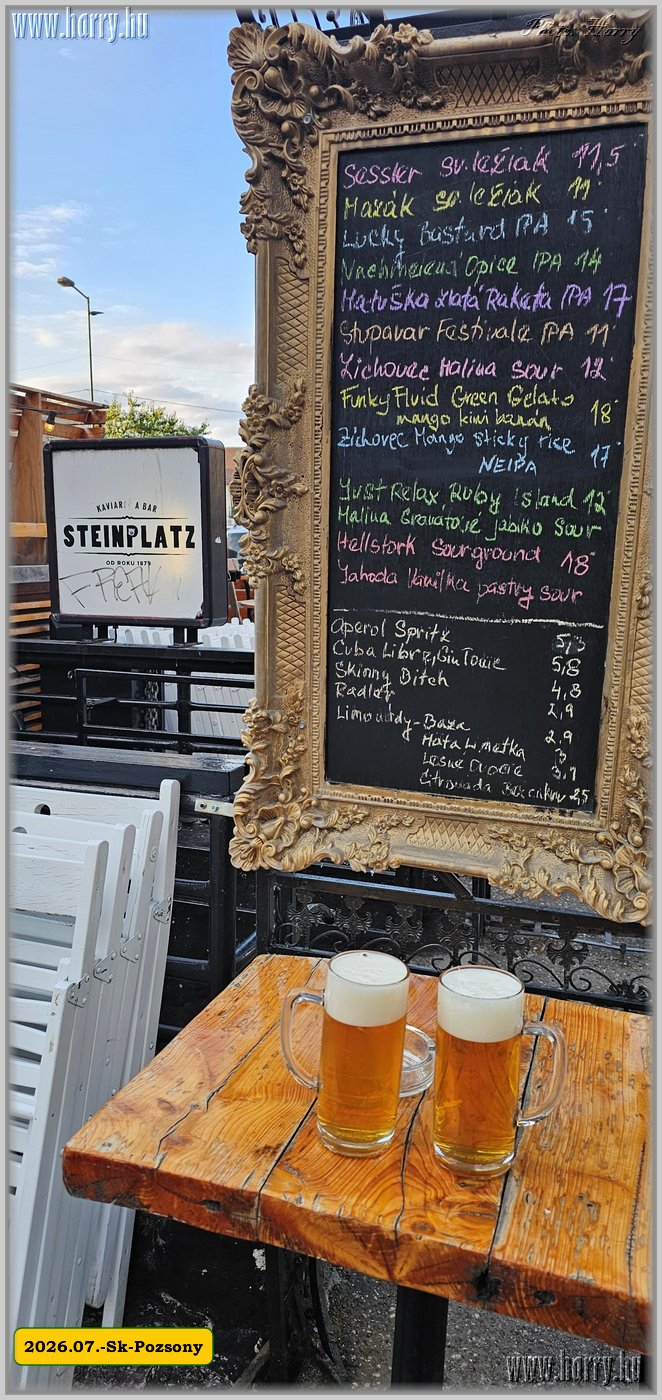 www.harry.hu
Photo: Harry
Sessler sv. ležiak 11,5°
Mazák sv. ležiak 11°
Lucky Bastard IPA 15°
Opice IPA 14°
Matuška zlatá Raketa IPA 17°
Stupavar Festivale IPA 11°
Zichovec Malina sour 12°
Funky Fluid Green Gelato
mango kiwi banán 18°
Zichovec Mango sticky rice
NEIPA 17°
Just Relax, Ruby Island 12°
Malina Granát jabĺko Sour
Hellstork Sourground 18°
Jahoda Vanilka pastry sour
Aperol Spritz 5,5
Cuba Libre, Gin Tonic 5,8
Skinny Bitch 4,8
Radler 2,9
Limonády - Baza 2,9
Mäta Limetka 3
Lesné Ovocie 3,1
Citronáda Bez cukru 2,5
KAVIAREŇ A BAR
STEINPLATZ
OD ROKU 1879
2026.07.-Sk-Pozsony
www.harry.hu